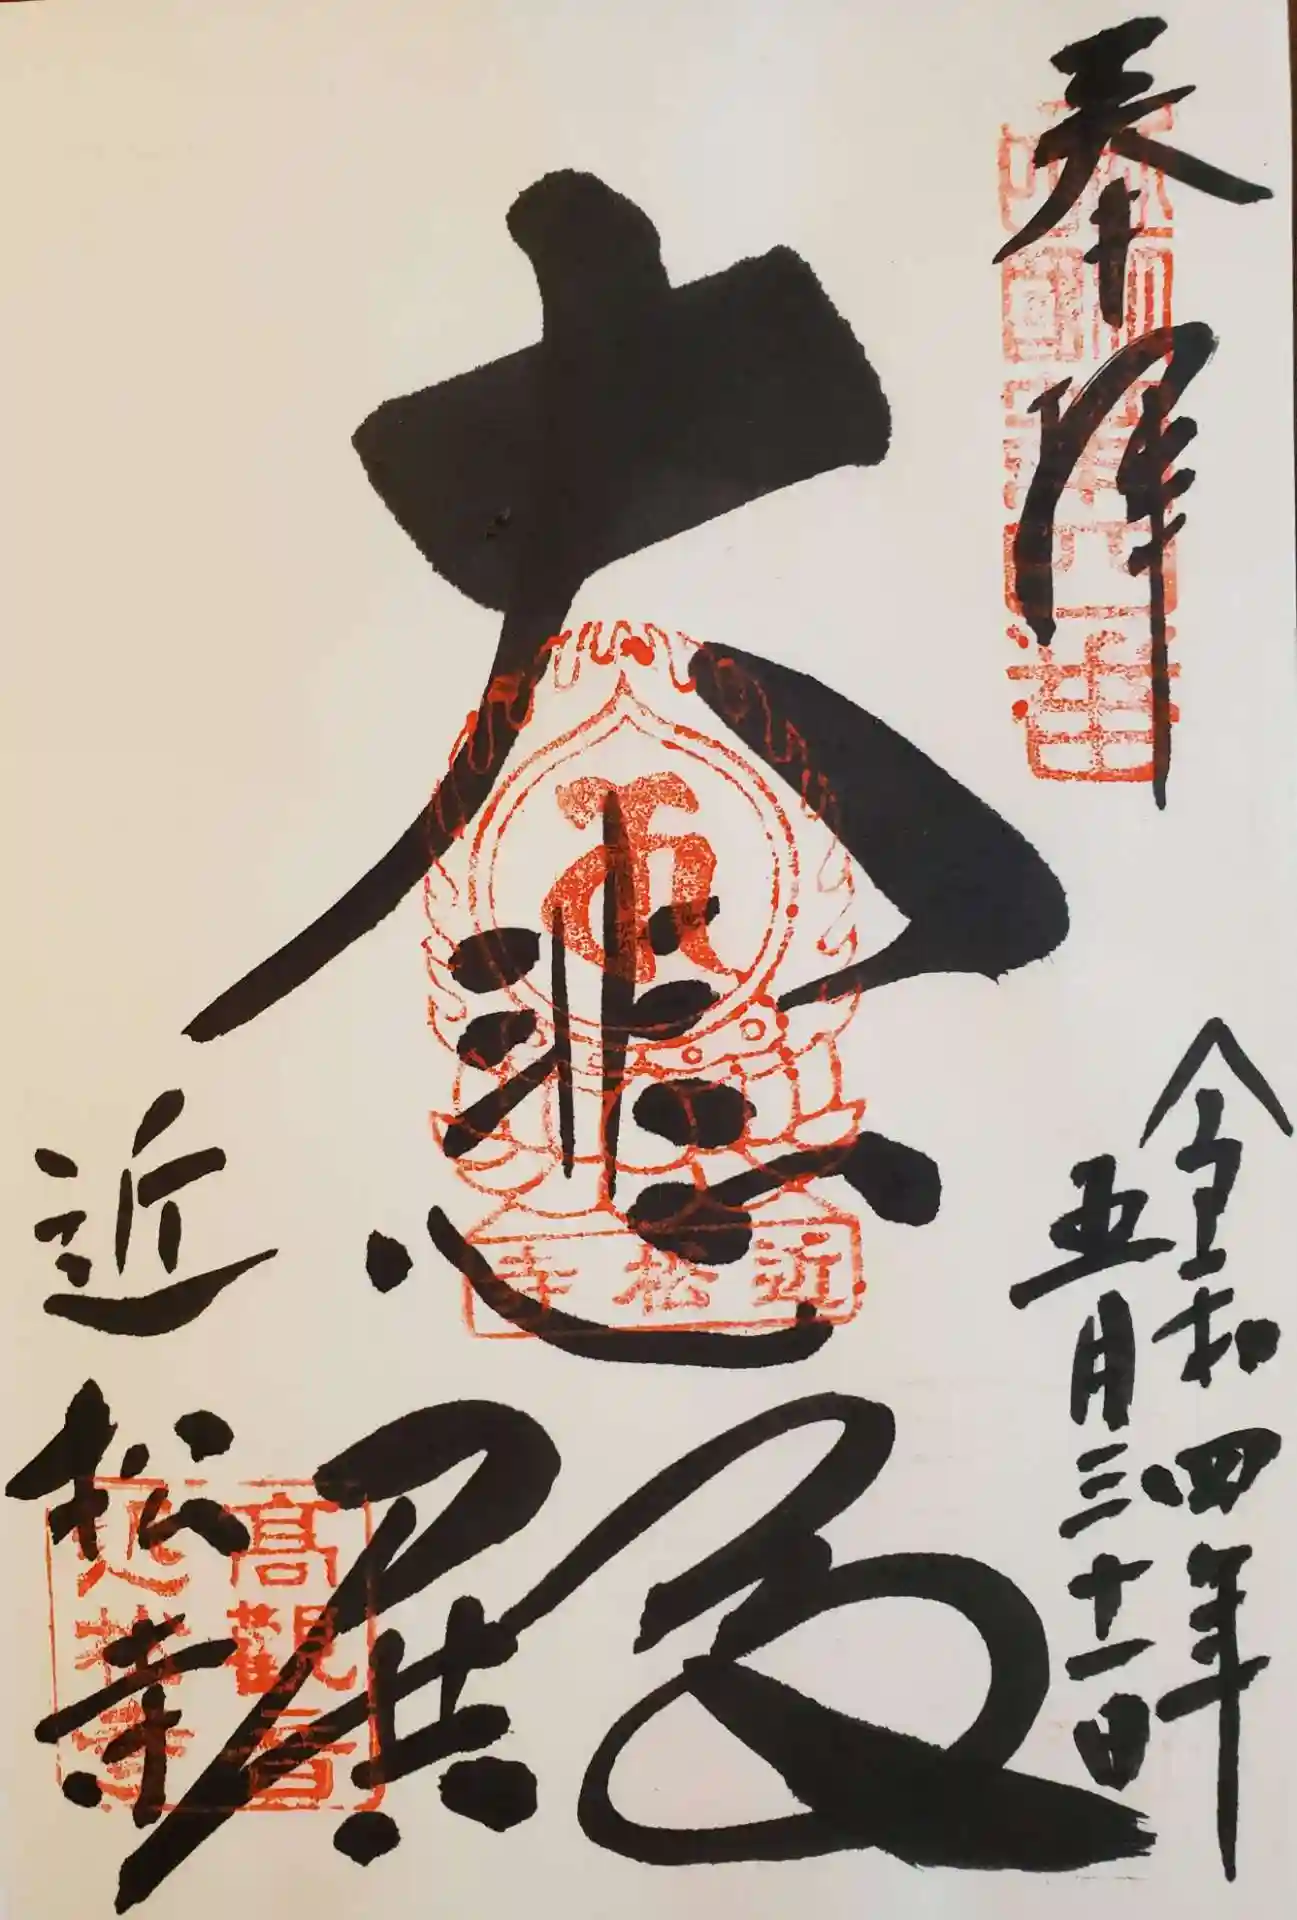 奉拝
令和四年
五月三十一日
大
悲
殿
近松寺
近松寺
高觀音
近松寺